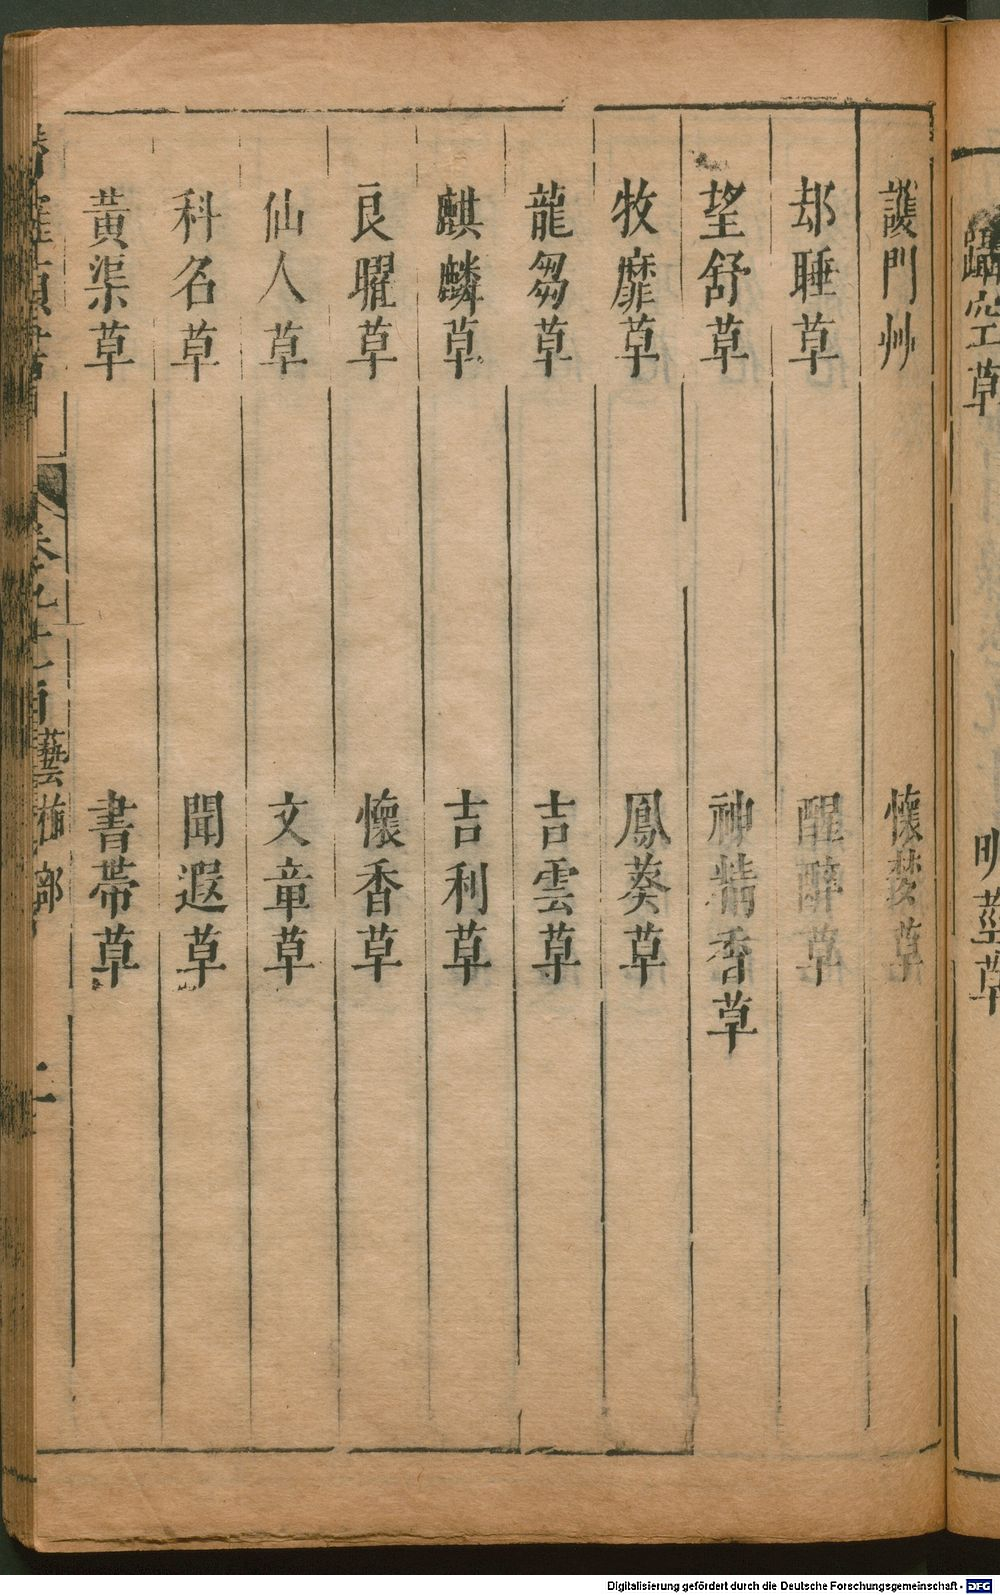 躡空草 明莖草
護門艸 懷夢草
却睡草 醒醉草
望舒草 神精香草
牧靡草 鳳葵草
龍芻草 吉雲草
麒麟草 吉利草
良曜草 懷香草
仙人草 文章草
科名草 聞遐草
黃渠草 書帶草
潛確類書 卷九十七目 藝植部 二
Digitalisierung gefördert durch die Deutsche Forschungsgemeinschaft - DFG